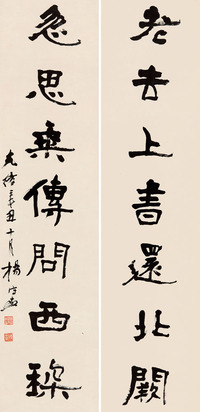 老去上書還北闕
急思乘傳問西琛
光緒辛丑十月楊守敬